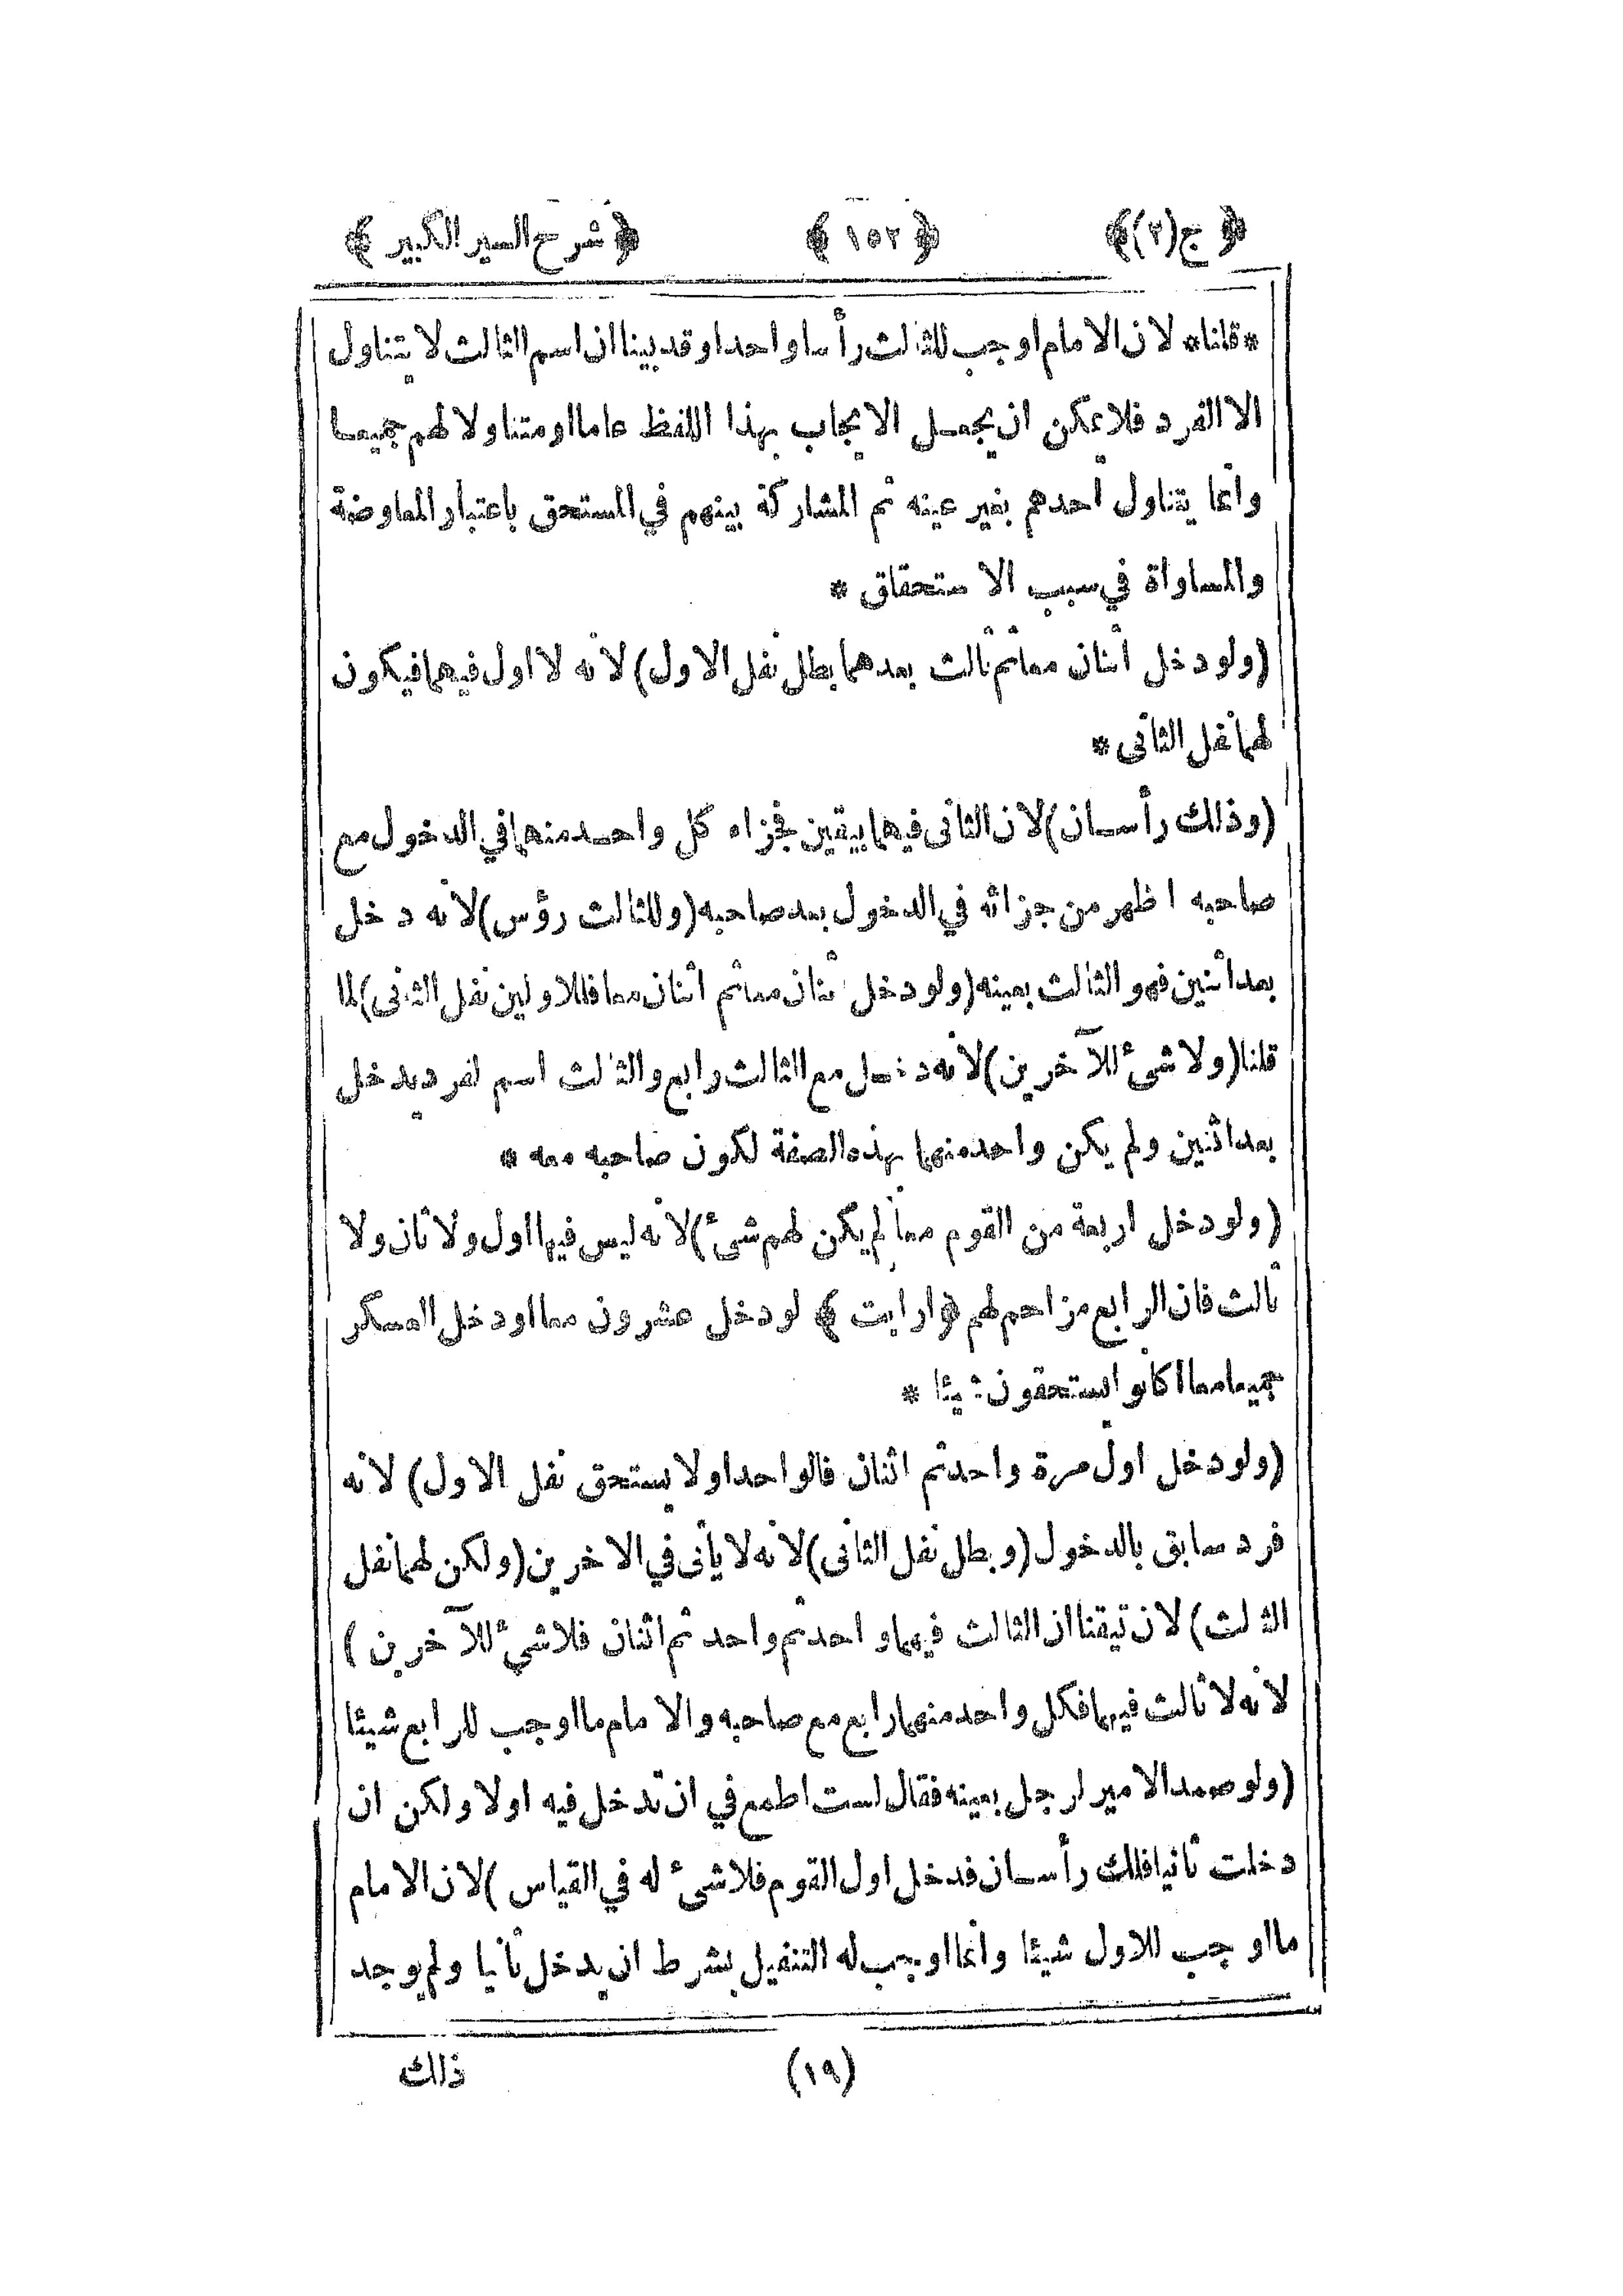 ﴿ ج(٢) ﴾ ﴿ ١٥٢ ﴾ ﴿ شرح السير الكبير ﴾
*قلنا* لان الامام اوجب للثالث رأسا واحدا وقد بينا ان اسم الثالث لا يتناول
الا الفرد فلا يمكن ان يجعل الايجاب بهذا اللفظ عاما او متناولا لهم جميعا
وانما يتناول احدهم بغير عينه ثم المشاركة بينهم في المستحق باعتبار المعاوضة
والمساواة في سبب الاستحقاق *
(ولو دخل اثنان معا ثم ثالث بعدهما بطل نفل الاول) لانه لا اول فيهما فيكون
لهما نفل الثانى *
(وذلك رأسان) لان الثانى فيهما بيقين فجزاء كل واحد منهما في الدخول مع
صاحبه اظهر من جزائه في الدخول بعد صاحبه (وللثالث رؤس) لانه دخل
بعد اثنين فهو الثالث بعينه (ولو دخل اثنان معا ثم اثنان معا فللاولين نفل الثانى) لما
قلنا (ولا شىء للآخرين) لانه دخل مع الثالث رابع والثالث اسم لفرد يدخل
بعد اثنين ولم يكن واحد منهما بهذه الصفة لكون صاحبه معه *
(ولو دخل اربعة من القوم معا لم يكن لهم شىء) لانه ليس فيها اول ولا ثان ولا
ثالث فان الرابع مزاحم لهم ﴿ ارايت ﴾ لو دخل عشرون معا او دخل العسكر
جميعا معا اكانوا يستحقون شيئا *
(ولو دخل اول مرة واحد ثم اثنان فالواحد اولا يستحق نفل الاول) لانه
فرد سابق بالدخول (وبطل نفل الثانى) لانه لا يأتى في الاخرين (ولكن لهما نفل
الثالث) لان تيقنا ان الثالث فيهما واحد ثم واحد ثم اثنان فلا شىء للآخرين )
لانه لا ثالث فيهما فكل واحد منهما رابع مع صاحبه والامام ما اوجب للرابع شيئا
(ولو صمد الامير لرجل بعينه فقال لست اطمع في ان تدخل فيه اولا ولكن ان
دخلت ثانيا فلك رأسان فدخل اول القوم فلا شىء له في القياس ) لان الامام
ما اوجب للاول شيئا وانما اوجب له التنفيل بشرط ان يدخل ثانيا ولم يوجد
(١٩) ذلك